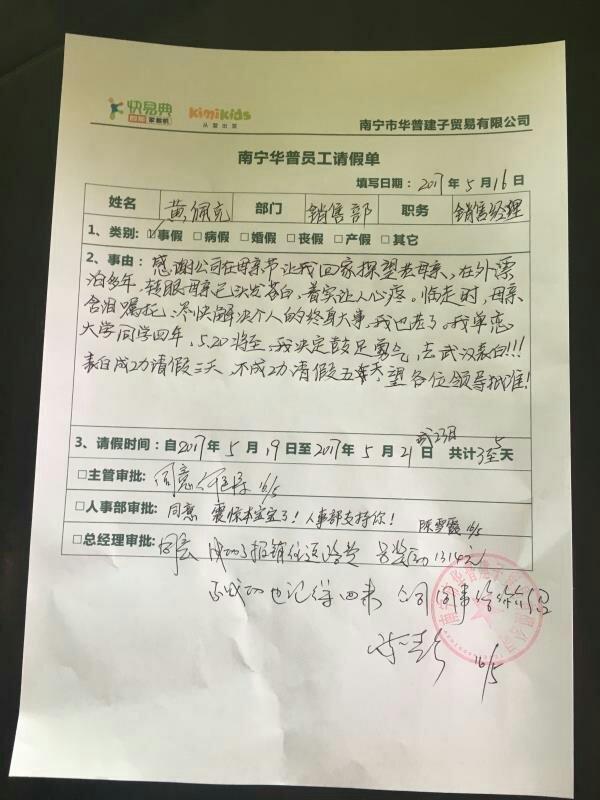 快易典
kimikids
从婴出发
南宁市华普建子贸易有限公司
南宁华普员工请假单
填写日期：2017年5月16日
姓名 黄佩克 部门 销售部 职务 销售经理
1、类别：☑事假 □病假 □婚假 □丧假 □产假 □其它
2、事由：感谢公司在母亲节让我回家探望老母亲，在外漂
泊多年，转眼母亲已头发苍白，着实让人心疼。临走时，母亲
含泪嘱托，尽快解决个人的终身大事，我也老了。我单恋
大学同学四年，5.20将至，我决定鼓足勇气，去武汉表白!!!
表白成功请假三天，不成功请假五天，望各位领导批准!
3、请假时间：自2017年5月19日至2017年5月21日 或23日 共计3至5天
□主管审批：同意 16/5
□人事部审批：同意 震惊本宝宝了！人事部支持你！ 陈雪 16/5
□总经理审批：同意 成功了报销往返路费 另奖励1314元
不成功也记得回来 公司同事给你介绍
16/5